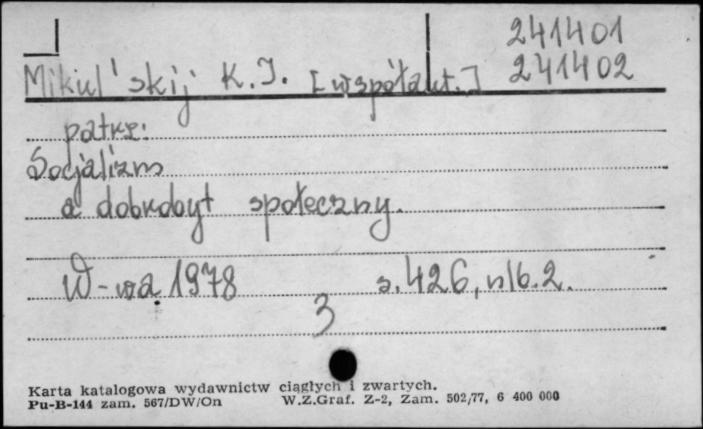 241401
Mikul'skij K.I. [współaut.] 241402
patrz:
Socjalizm
a dobrobyt społeczny.
W-wa 1978 s. 426, nlb. 2.
3
Karta katalogowa wydawnictw ciągłych i zwartych.
Pu-B-144 zam. 567/DW/On W.Z.Graf. Z-2, Zam. 502/77, 6 400 000